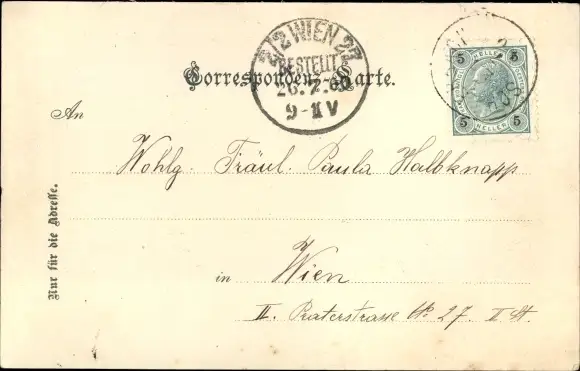 2/2 WIEN 2
BESTELLT
26.7.00
9-1V
Correspondenz-Karte.
5 5
HELLER
5 5
HELLER
An
Wohlg. Fräul. Paula Halbknapp
Nur für die Adresse.
in Wien
II. Praterstrasse No. 27. II St.